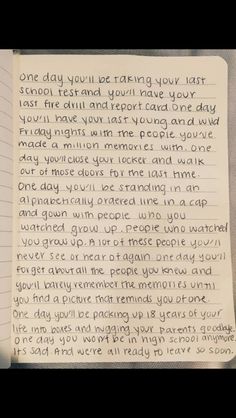 One day you'll be taking your last
school test and you'll have your
last fire drill and report card. One day
you'll have your last young and wild
Friday nights with the people you've
made a million memories with. One
day you'll close your locker and walk
out of those doors for the last time.
One day you'll be standing in an
alphabetically ordered line in a cap
and gown with people who you
watched grow up. People who watched
you grow up. A lot of these people you'll
never see or hear of again. One day you'll
forget about all the people you knew and
you'll barely remember the memories until
you find a picture that reminds you of one.
One day you'll be packing up 18 years of your
life into boxes and hugging your parents goodbye.
One day you won't be in high school anymore.
It's sad. And we're all ready to leave so soon.